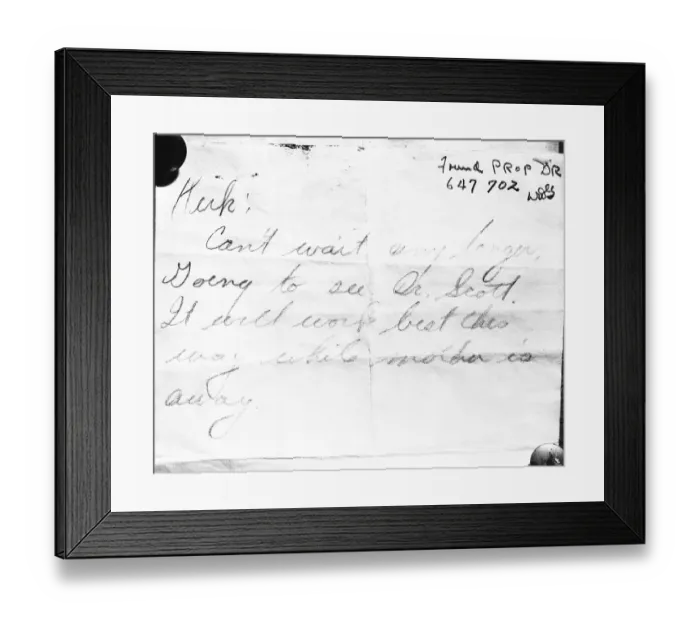 Found PROP DR
647 702 WDG
Kirk:
Can't wait any longer,
Going to see Dr. Scott.
It will work best this
way while mother is
away.